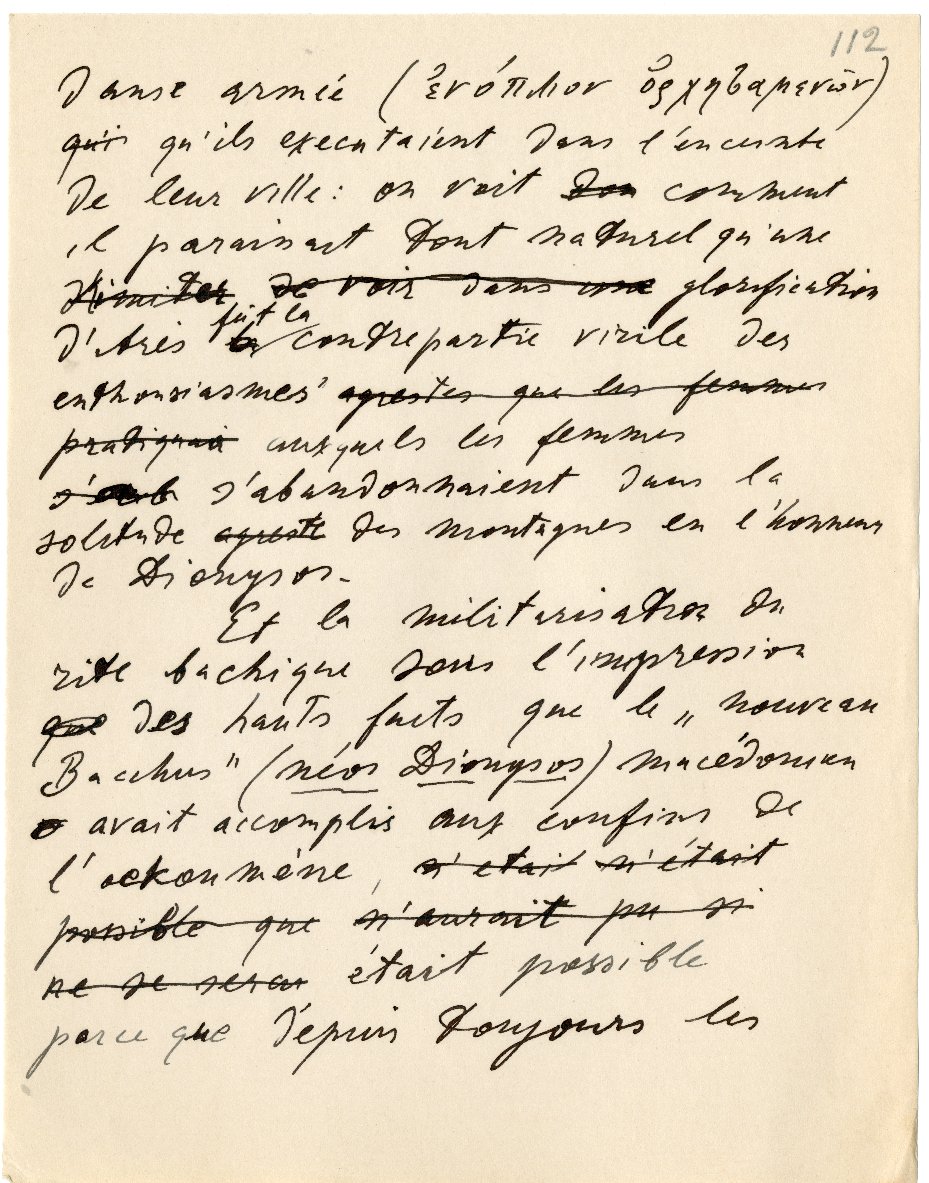 112
danse armée (ἐνόπλιον ὀρχησαμενῶν)
qui qu'ils executaient dans l'enceinte
de leur ville : on voit don comment
il paraissait tout naturel qu'une
d'imiter de voir dans une glorification
d'Arès fût la la contrepartie virile des
enthousiasmes agrestes que les femmes
pratiquai auxquels les femmes
s'aband s'abandonnaient dans la
solitude agreste des montagnes en l'honneur
de Dionysos.
Et la militarisation du
rite bachique sous l'impression
que des hauts faits que le „nouveau
Bacchus" (néos Dionysos) macédonien
avait accomplis aux confins de
l'oekoumène, n'etait n'était
possible que n'aurait pu si
ne se serai était possible
parce que depuis toujours les